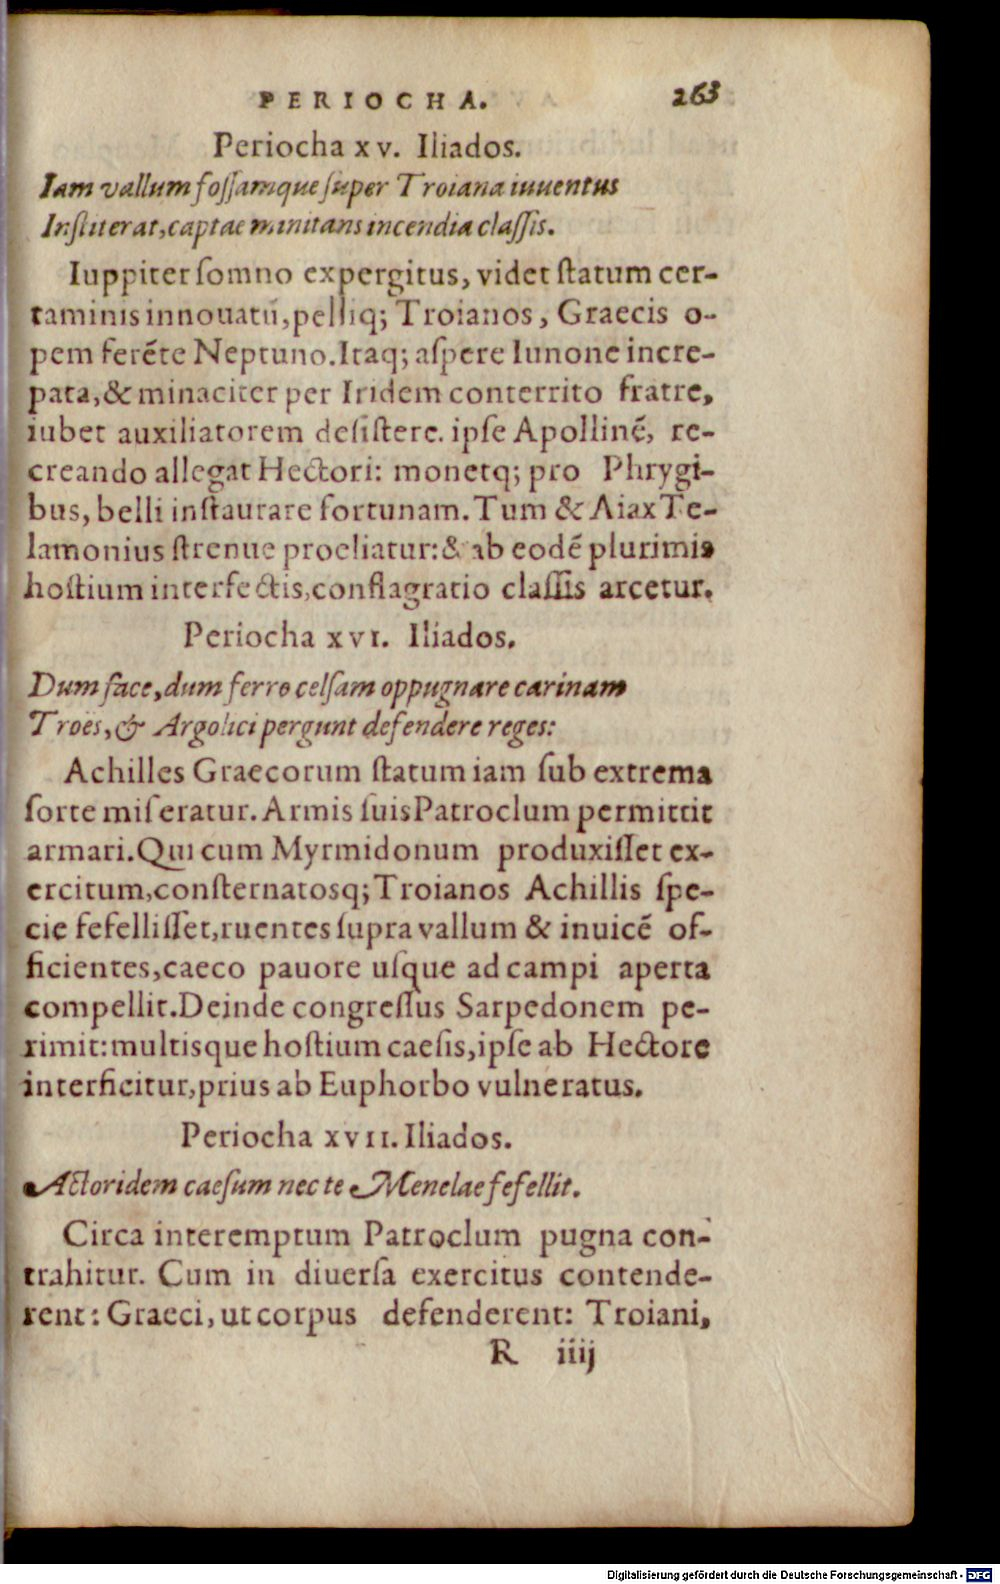 PERIOCHA. 263
Periocha xv. Iliados.
Iam vallum foſſamque ſuper Troiana iuuentus
Inſtiterat, captae minitans incendia claſſis.
Iuppiter ſomno expergitus, videt ſtatum cer-
taminis innouatũ, pelliq; Troianos, Graecis o-
pem ferẽte Neptuno. Itaq; aſpere Iunone incre-
pata, & minaciter per Iridem conterrito fratre,
iubet auxiliatorem deſiſtere. ipſe Apollinẽ, re-
creando allegat Hectori: monetq; pro Phrygi-
bus, belli inſtaurare fortunam. Tum & Aiax Te-
lamonius ſtrenue proeliatur: & ab eodẽ plurimis
hoſtium interfectis, conflagratio claſſis arcetur.
Periocha xvi. Iliados.
Dum face, dum ferro celſam oppugnare carinam
Troës, & Argolici pergunt defendere reges:
Achilles Graecorum ſtatum iam ſub extrema
ſorte miſeratur. Armis ſuis Patroclum permittit
armari. Qui cum Myrmidonum produxiſſet ex-
ercitum, conſternatosq; Troianos Achillis ſpe-
cie fefelliſſet, ruentes ſupra vallum & inuicẽ of-
ficientes, caeco pauore uſque ad campi aperta
compellit. Deinde congreſſus Sarpedonem pe-
rimit: multisque hoſtium caeſis, ipſe ab Hectore
interficitur, prius ab Euphorbo vulneratus.
Periocha xvii. Iliados.
Actoridem caeſum nec te Menelae fefellit.
Circa interemptum Patroclum pugna con-
trahitur. Cum in diuerſa exercitus contende-
rent: Graeci, ut corpus defenderent: Troiani,
R iiij
Digitalisierung gefördert durch die Deutsche Forschungsgemeinschaft - DFG